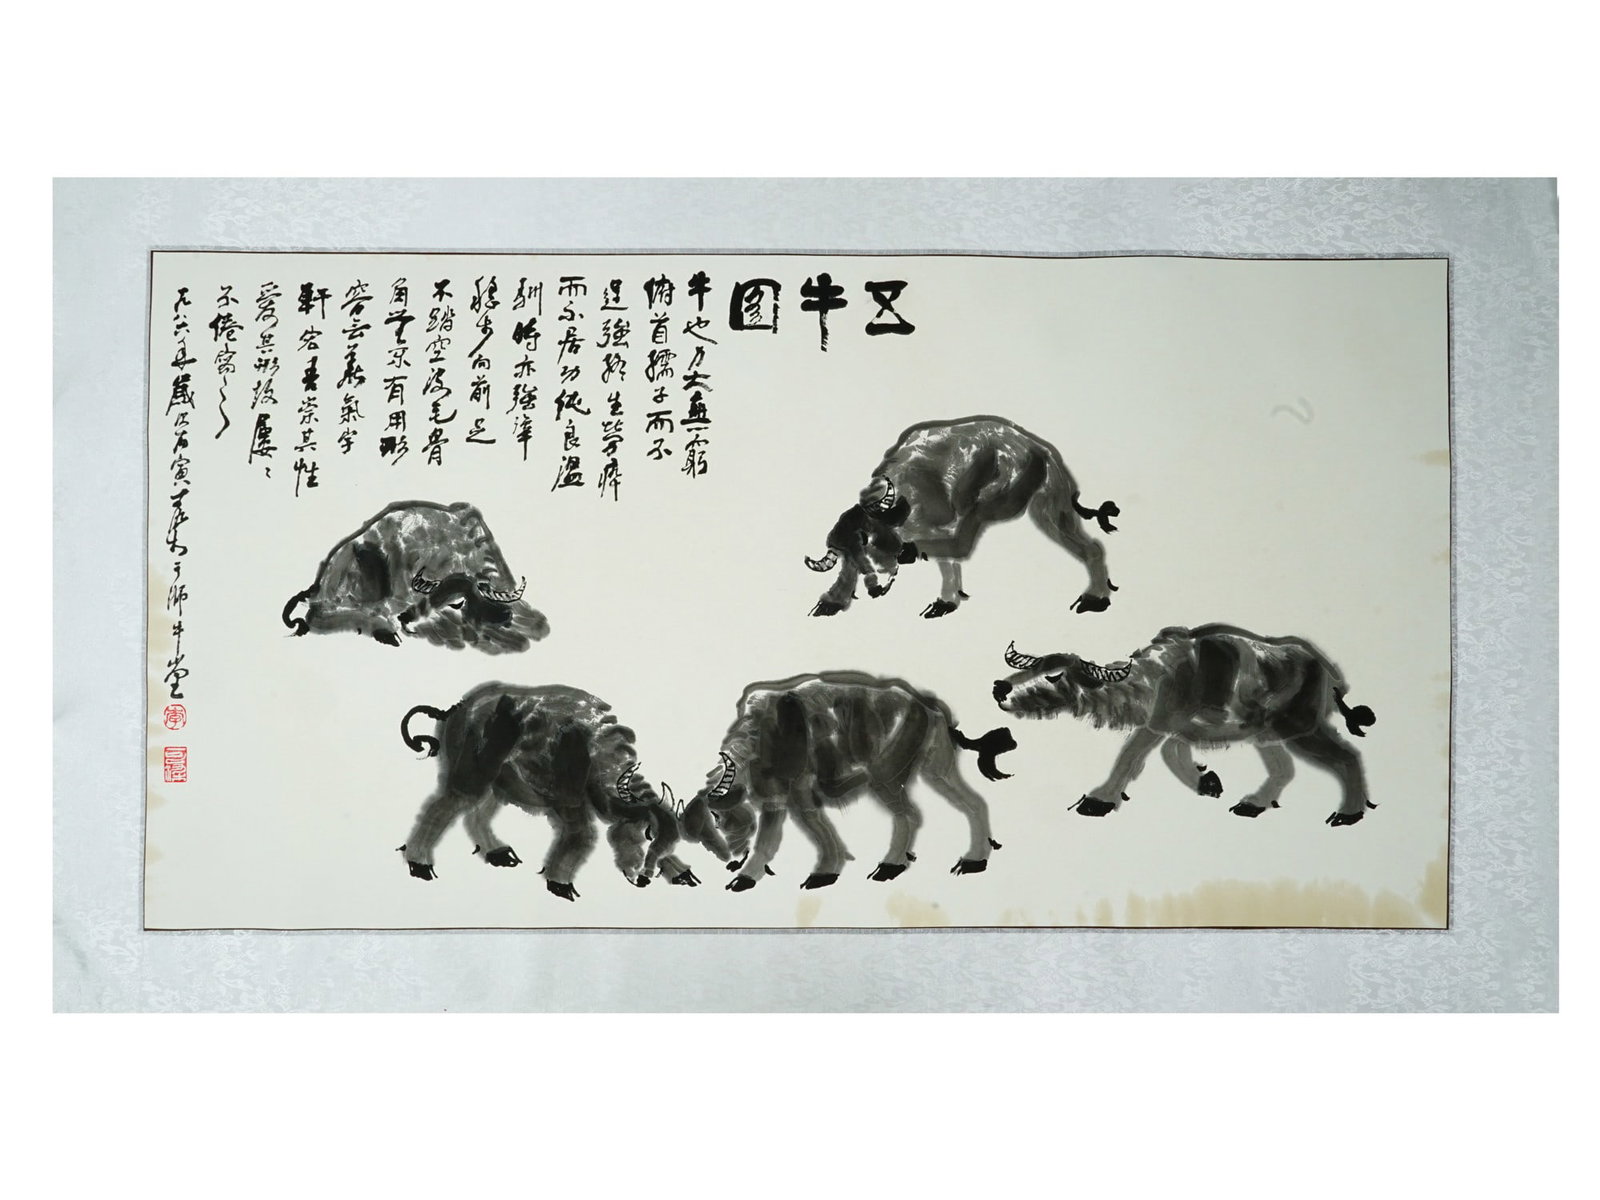 五牛图
牛也力大無窮
俯首孺子而不
逞強終生勞瘁
而不居功純良溫
馴時亦強犟
穩步向前足
不踏空皮毛骨
角無不有用形
容无華氣宇
軒宏吾崇其性
愛其形故屢〻
不倦寫之
一九八六年歲次丙寅可染于師牛堂
李